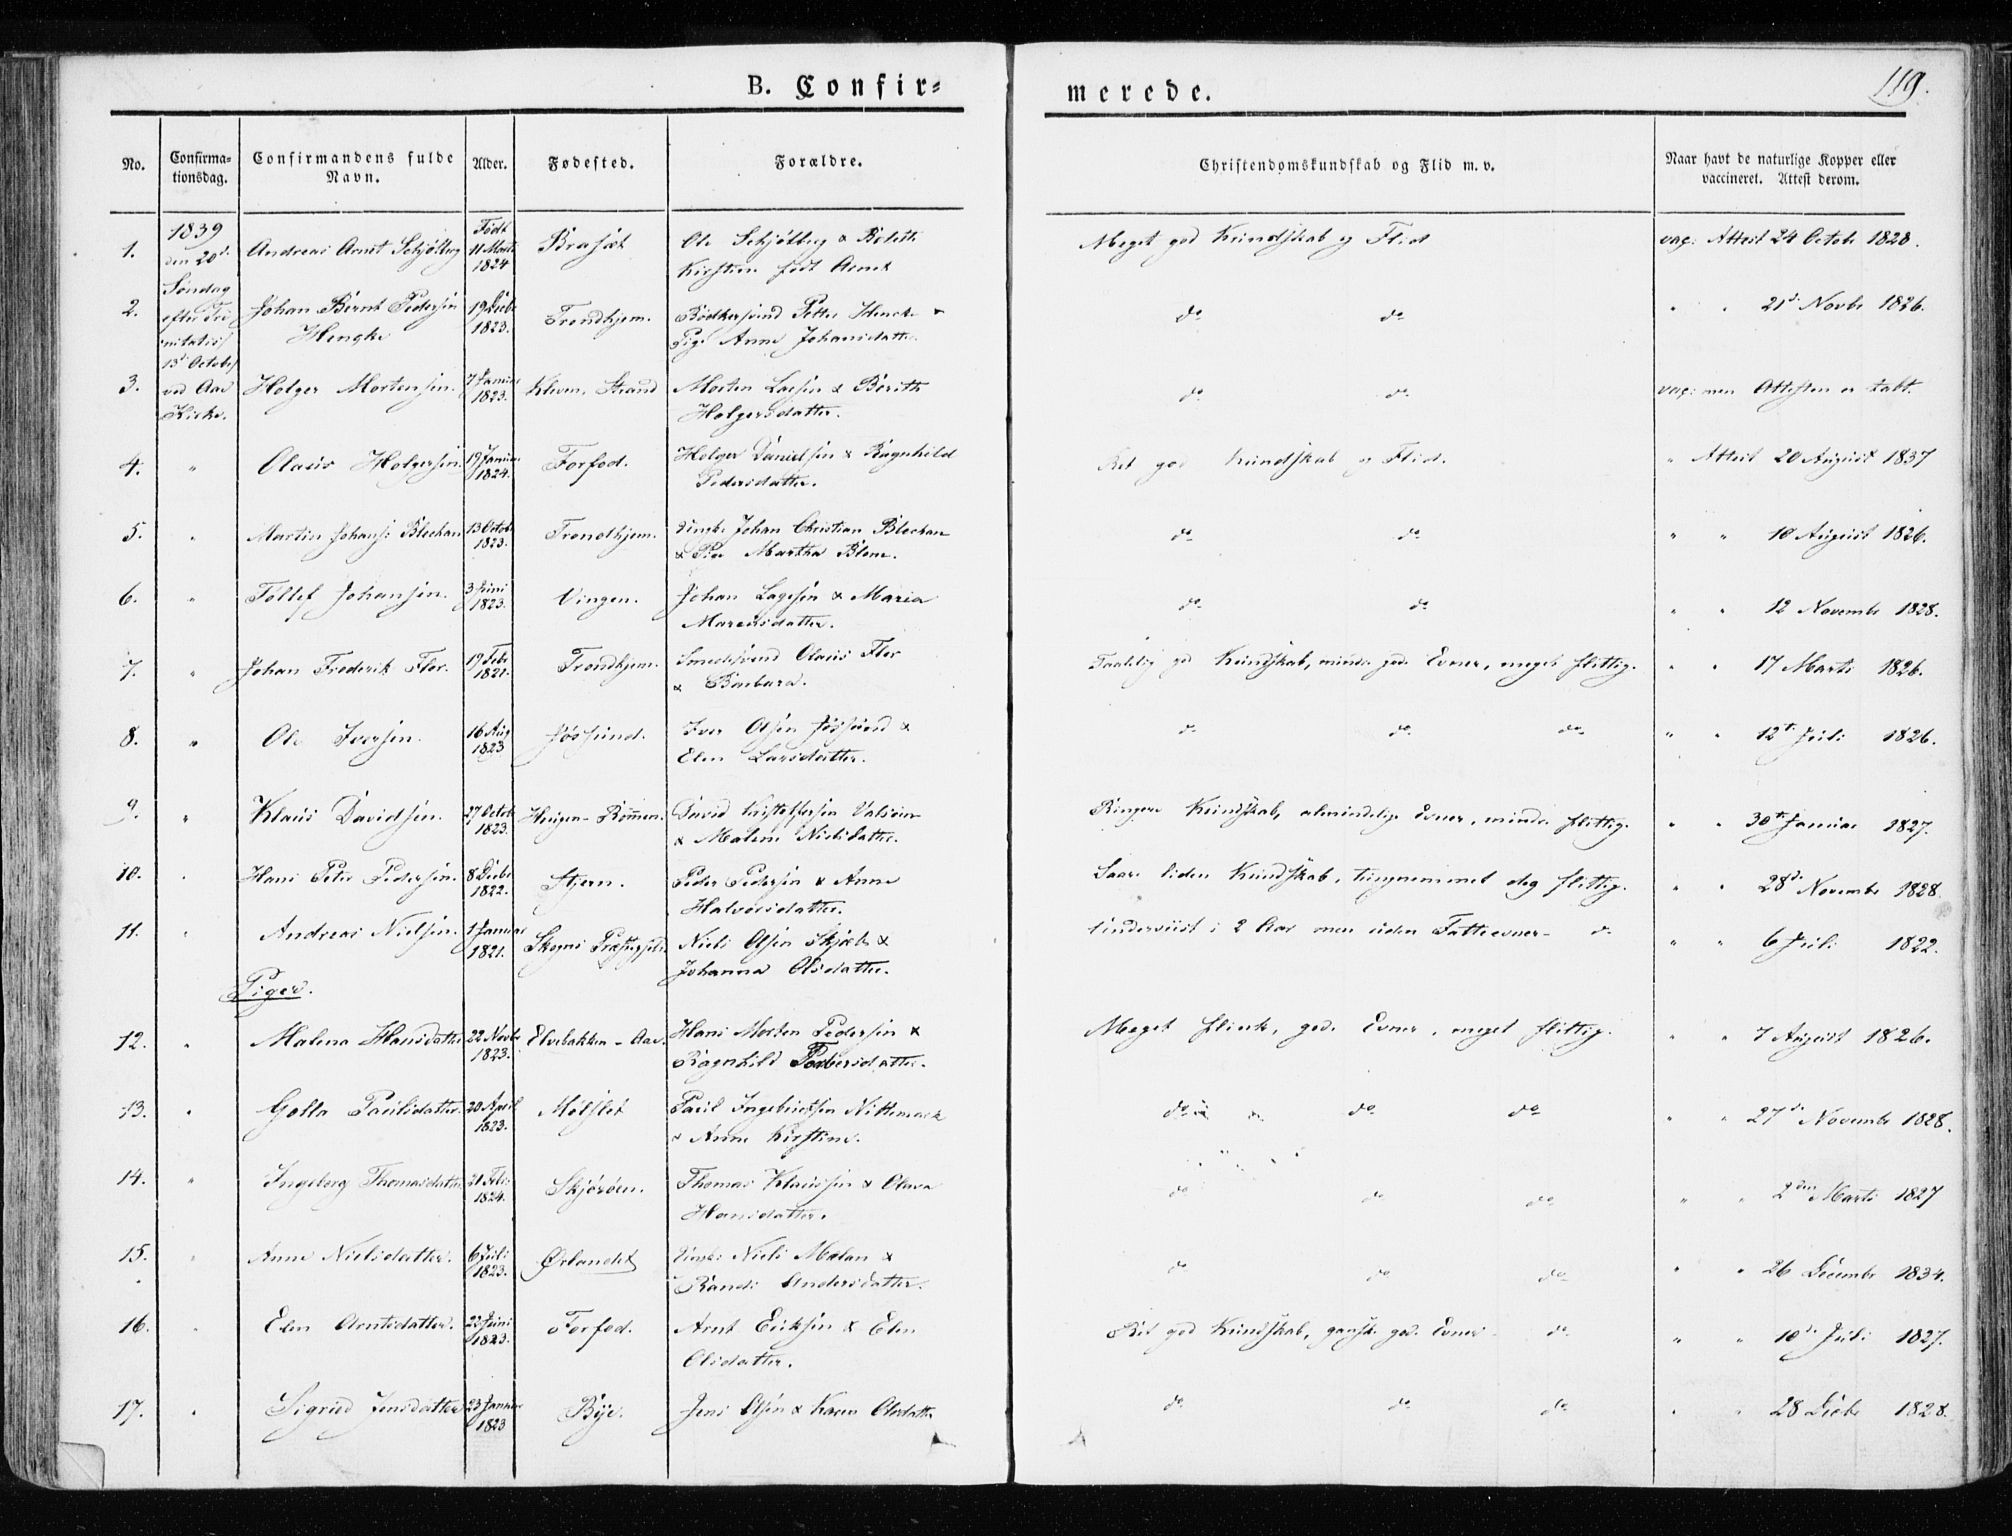 B. Confir=
merede.
119.
No.
Confirma-
tionsdag.
Confirmandens fulde
Navn.
Alder.
Fødested.
Forældre.
Christendomskundskab og Flid m. v.
Naar havt de naturlige Kopper eller
vaccineret. Attest derom.
1839
den 20de
Søndag
efter Tri
nitatis
13de October
ved Aae
Kirke.
1. Andreas Arnt Schjølberg Født 11 Marts 1824 Ole Schjølberg & Bolette
Kirstine født Arnt
Meget god Kundskab og Flid vac: Attest 24 Octobr 1828.
2. Johan Bernt Pedersen 19 Decbr 1823. Trondhjem. Bødkersvend Petter Hencke &
Hengke Pige Anne Johansdatter.
do do " " 21de Novbr 1826.
3. Holger Mortensen. 7 Januar 1823. Kleven, Strand Morten Larsen & Berith
Holgersdatter.
do do vac: men Attesten er tabt.
4. " Olaus Holgersen. 19 Januar 1824. Forfod. Holger Danielsen & Ragnhild
Pedersdatter.
Ret god Kundskab og Flid. " Attest 20 August 1837
5. " Martin Johans: Blechan 13 Octobr 1823. Trondhjem. Johan Christian Blechan
& Pige Martha Blom.
do do " " 10 August 1826.
6. " Tollef Johansen. 3 Juni 1823. Vingen. Johan Lagesen & Maria
Marcusdatter.
do do " " 12 Novembr 1828.
7. " Johan Frederik Flor. 19 Febr 1821. Trondhjem. Smedesvend Olaus Flor
& Barbara.
Taalelig god Kundskab, mindre gode Evner, meget flittig. " " 17 Marts 1826.
8. " Ole Iversen. 16 Aug 1823 Jøssund. Iver Olsen Jøssund &
Elen Larsdatter.
do do do " " 12te Juli 1826.
9. " Klaus Davidsen. 27 Octobr 1823. David Kristoffersen
& Malene Nielsdatter.
Ringere Kundskab, almindelige Evner, mindre flittig. " " 30te Januar 1827.
10. " Hans Peter Pedersen. 8 Decbr 1822. Stjern. Peder Pedersen & Anne
Halvorsdatter.
Saare liden Kundskab, tungnemmet dog flittig. " " 28de Novembr 1828.
11. " Andreas Nielsen. 1 Januar 1821. Skogns Præstegjeld. Niels Olsen &
Johanna Olsdatter.
Underviist i 2 Aar men uden Fatteevner - do " " 6 Juli 1822.
Piger.
12. " Malena Hansdatter 22 Novbr 1823. Elvebakken - Aae. Hans Morten Pedersen &
Ragnhild Torbersdatter.
Meget flink, gode Evner, meget flittig. " " 7 August 1826.
13. " Golla Paulsdatter. 20 April 1823. Mølslet Paul Ingebrigtsen Nittemark
& Anne Kirstine.
do do do " " 27de Novembr 1828.
14. " Ingeborg Thomasdatter 21 Febr 1824. Skjørøen. Thomas Klausen & Olava
Hansdatter.
do do do " " 2den Marts 1827
15. " Anne Nielsdatter. 6 Juli 1823. Ørlandet Niels Malan &
Randi Andersdatter.
do do do " " 26 Decembr 1834.
16. " Elen Arntsdatter. 22 Juni 1823. Forfod. Arnt Eriksen & Elen
Olsdatter.
Ret god Kundskab, ganske gode Evner - do " " 10de Juli 1827.
17. " Sigried Jensdatter 23 Januar 1823 Bye. Jens Olsen & Karen Olsdatter
do do do " " 28 Decbr 1828.